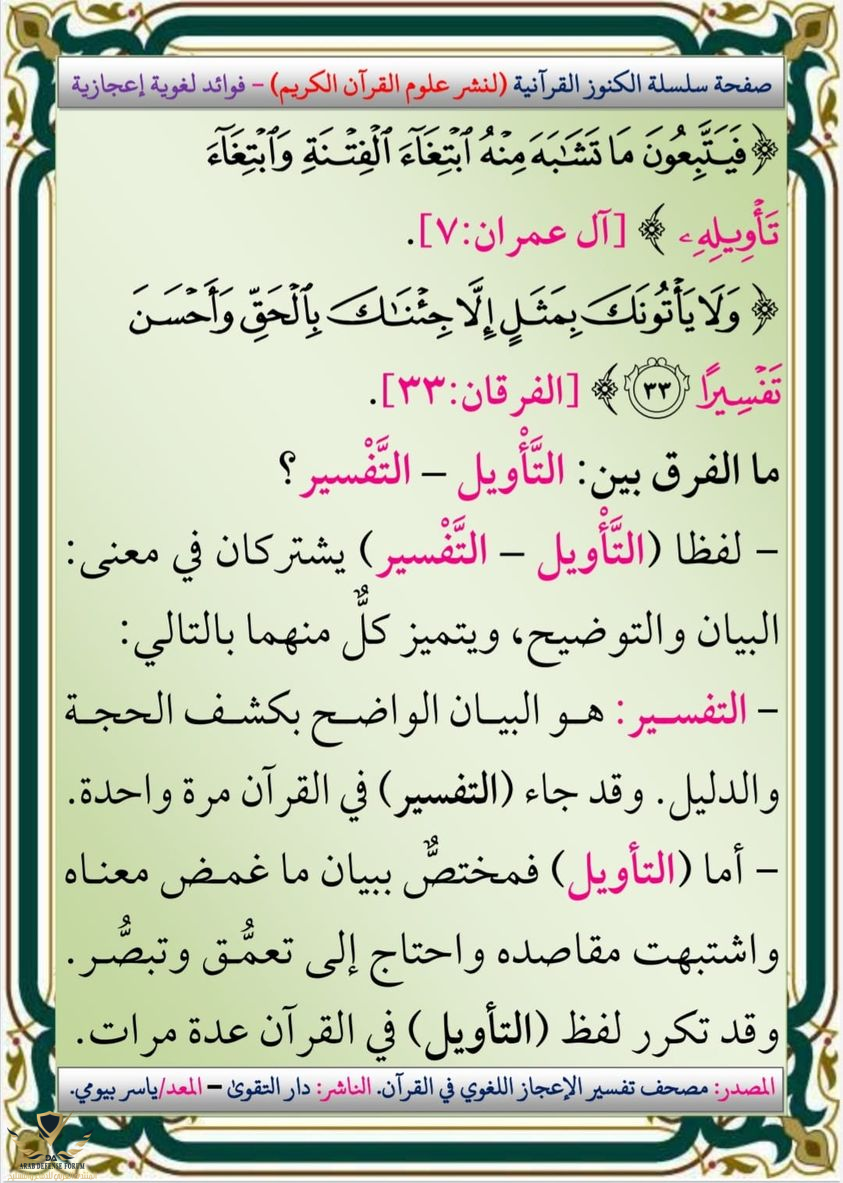 صفحة سلسلة الكنوز القرآنية (لنشر علوم القرآن الكريم) – فوائد لغوية إعجازية
﴿ فَيَتَّبِعُونَ مَا تَشَٰبَهَ مِنۡهُ ٱبۡتِغَآءَ ٱلۡفِتۡنَةِ وَٱبۡتِغَآءَ
تَأۡوِيلِهِۦ ﴾ [آل عمران:٧].
﴿ وَلَا يَأۡتُونَكَ بِمَثَلٍ إِلَّا جِئۡنَٰكَ بِٱلۡحَقِّ وَأَحۡسَنَ
تَفۡسِيرًا ٣٣ ﴾ [الفرقان:٣٣].
ما الفرق بين: التَّأْويل – التَّفْسير ؟
– لفظا (التَّأْويل – التَّفْسير) يشتركان في معنى:
البيان والتوضيح، ويتميز كلٌّ منهما بالتالي:
– التفسير: هو البيان الواضح بكشف الحجة
والدليل. وقد جاء (التفسير) في القرآن مرة واحدة.
– أما (التأويل) فمختصٌّ ببيان ما غمض معناه
واشتبهت مقاصده واحتاج إلى تعمُّق وتبصُّر.
وقد تكرر لفظ (التأويل) في القرآن عدة مرات.
المصدر: مصحف تفسير الإعجاز اللغوي في القرآن. الناشر: دار التقوىٰ – المعد/ياسر بيومي.
DA
ARAB DEFENSE FORUM